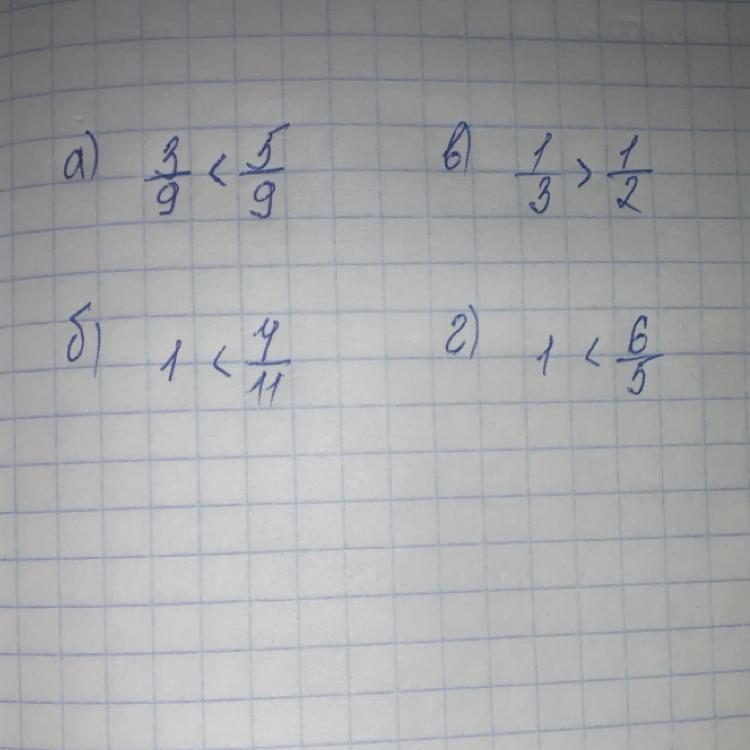 а) 3/9 < 5/9
в) 1/3 > 1/2
б) 1 < 4/11
г) 1 < 6/5